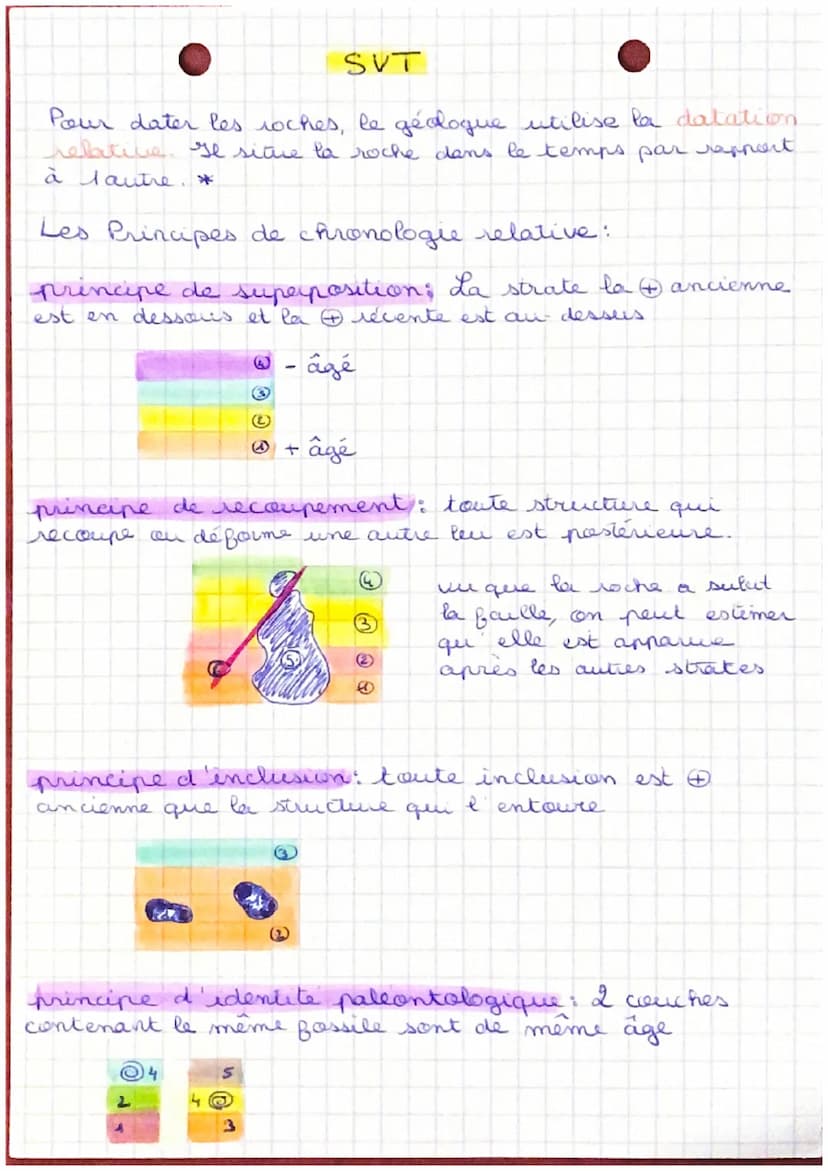 SVT
Pour dater les roches, le géologue utilise la datation
relative. Il situe la roche dans le temps par rapport
à l'autre. *
Les Principes de chronologie relative:
principe de superposition: La strate la ⊕ ancienne
est en dessous et la ⊕ récente est au-dessus
④ - âgé
③
②
① + âgé
principe de recoupement: toute structure qui
recoupe ou déforme une autre leu est postérieure.
④
③
②
①
5
6
vu que la roche a subut
la faille, on peut estimer
qu'elle est apparue
après les autres strates
principe d'inclusion: toute inclusion est ⊕
ancienne que la structure qui l'entoure
③
②
principe d'identité paléontologique: 2 couches
contenant le même fossile sont de même âge
4 5
2 4
1 3